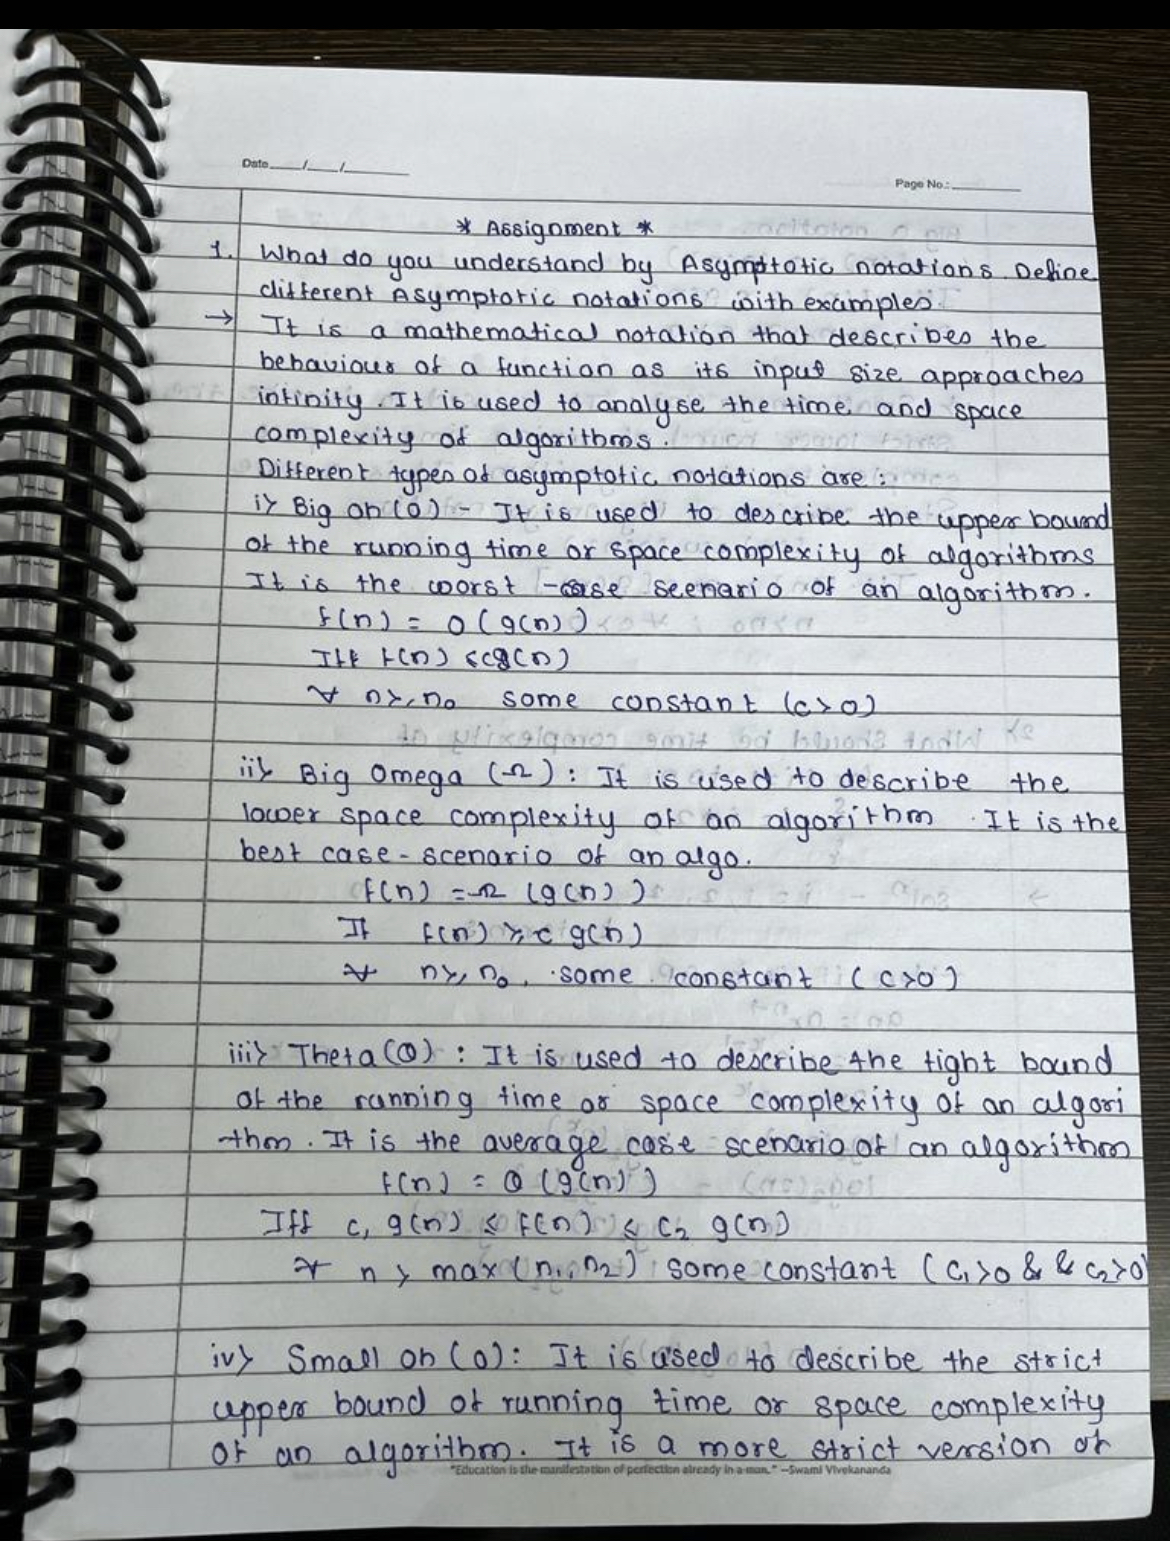 Date___/___/______
Page No.:________
* Assignment *
1. What do you understand by Asymptotic notations. Define
different Asymptotic notations with examples.
→ It is a mathematical notation that describes the
behaviour of a function as its input size approaches
infinity. It is used to analyse the time and space
complexity of algorithms.
Different types of asymptotic notations are:
i) Big oh (O) - It is used to describe the upper bound
of the running time or space complexity of algorithms
It is the worst - case seenario of an algorithm.
f(n) = O(g(n))
Iff f(n) ≤ cg(n)
∀ n≥n₀ some constant (c>0)
2) What should be time complexity of
ii) Big Omega (Ω): It is used to describe the
lower space complexity of an algorithm. It is the
best case-scenario of an algo.
f(n) = Ω (g(n))
If f(n) ≥ c g(n)
∀ n≥n₀, some constant (c>0)
iii) Theta (Θ): It is used to describe the tight bound
of the running time or space complexity of an algori
thm. It is the average case scenario of an algorithm
f(n) = Θ (g(n))
Iff c₁ g(n) ≤ f(n) ≤ c₂ g(n)
∀ n > max (n₁, n₂) some constant (c₁>0 && c₂>0)
iv) Small oh (o): It is used to describe the strict
upper bound of running time or space complexity
of an algorithm. It is a more strict version of
"Education is the manifestation of perfection already in a man." –Swami Vivekananda